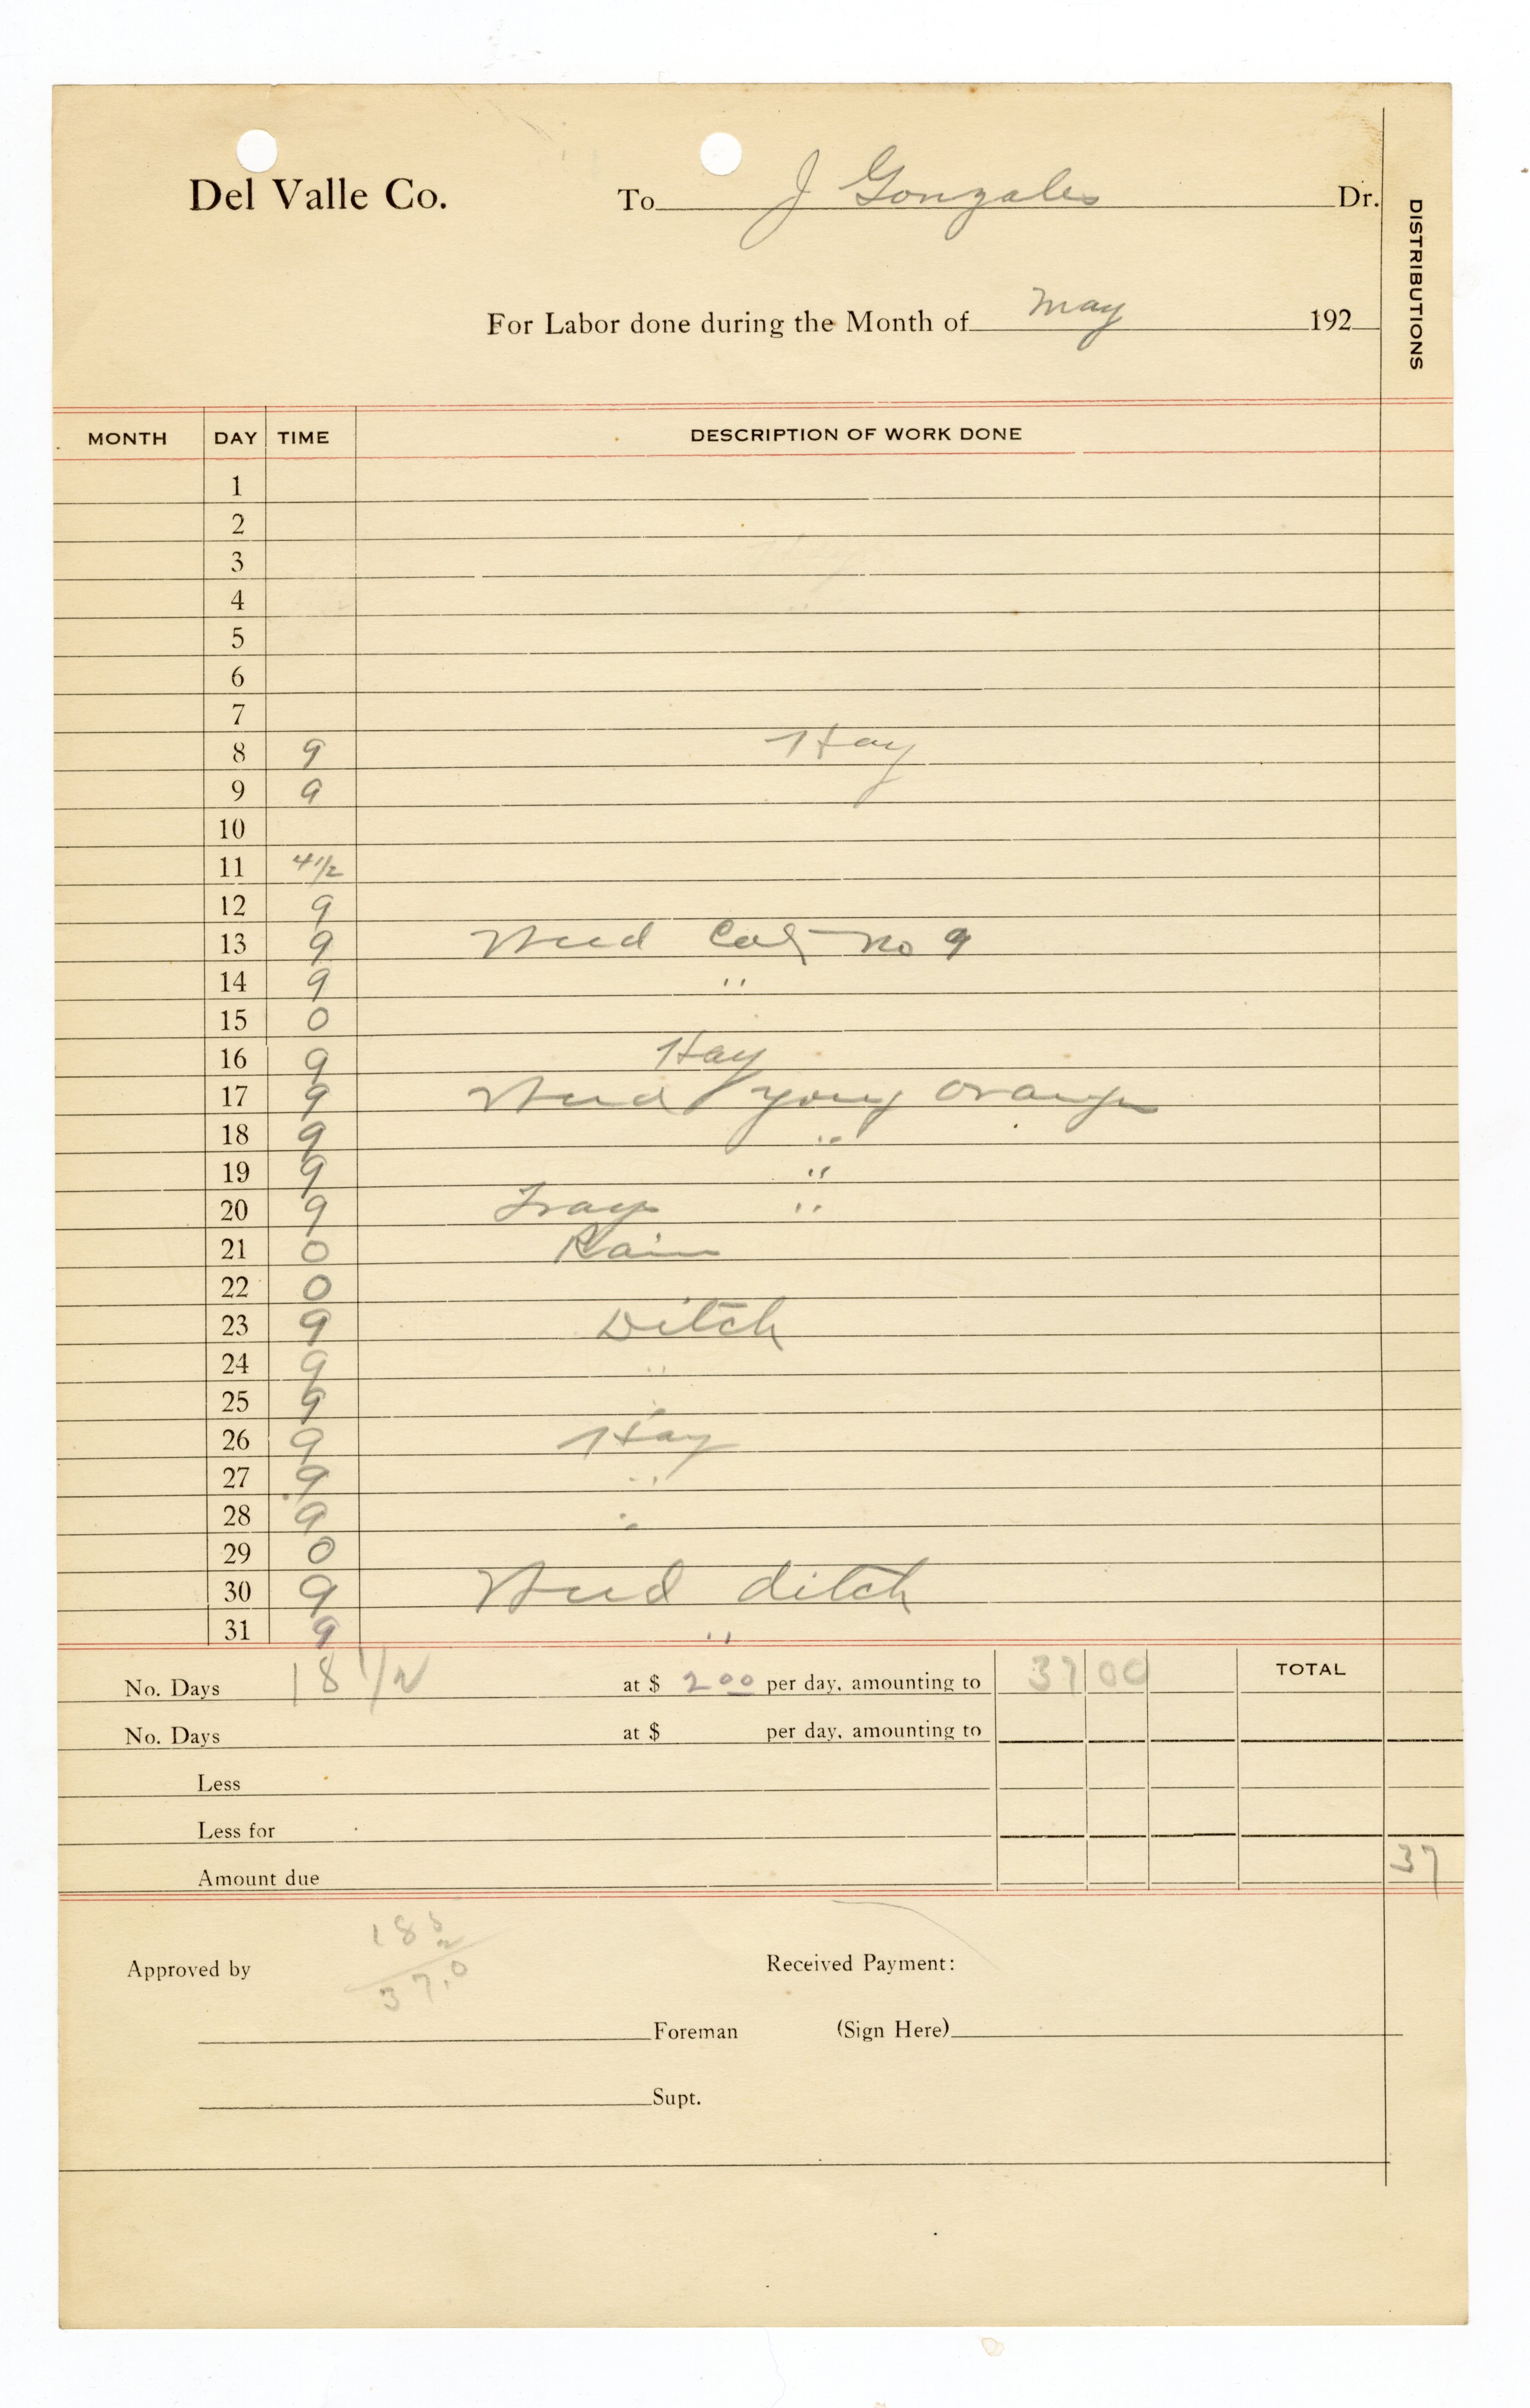 Del Valle Co. To J Gonzales Dr.
DISTRIBUTIONS
For Labor done during the Month of May 192
MONTH DAY TIME DESCRIPTION OF WORK DONE
1
2
3
4
5
6
7
8 9 Hay
9 9
10
11 4 1/2
12 9
13 9 Weed no 9
14 9 "
15 0
16 9 Hay
17 9 Weed young orange
18 9 "
19 9 "
20 9 "
21 0 Rain
22 0
23 9 Ditch
24 9 "
25 9 "
26 9 Hay
27 9 "
28 9 "
29 0
30 9 Weed ditch
31 9 "
No. Days 18 1/2 at $ 2 00 per day, amounting to 37 00 TOTAL
No. Days at $ per day, amounting to
Less
Less for
Amount due 37
18 5
2
37.0
Approved by Received Payment:
Foreman (Sign Here)
Supt.